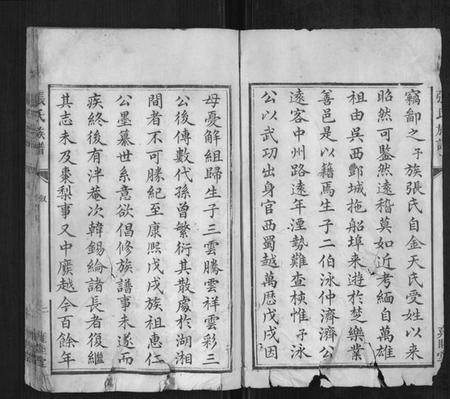 竊鄙之子族張氏自金天氏受姓以來
昭然可鑒然遠稽莫如近考緬自萬雄
祖由吳西酆城拖船埠來遊於楚樂業
善邑是以籍焉生子二伯泳仲濟濟公
遠客中州路遠年湮勢難查核惟子泳
公以武功出身官西蜀越萬歷戊戌因
母憂解組歸生子三雲騰雲祥雲彩三
公後傳數代孫曾繁衍其散處於湖湘
間者不可勝紀至康熙戊戌族祖惠仁
公墨纂世系意欲倡修族譜事未遂而
疾終後有泮菴次韓錫綸諸長者復繼
其志未及棗梨事又中廣越今百餘年
張氏族譜
敘